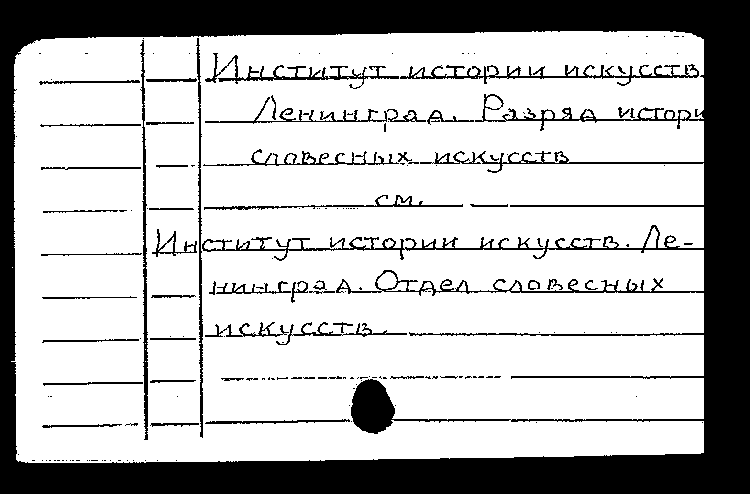 Институт истории искусств
Ленинград. Разряд истори
словесных искусств
см.
Институт истории искусств. Ле-
нинград. Отдел словесных
искусств.